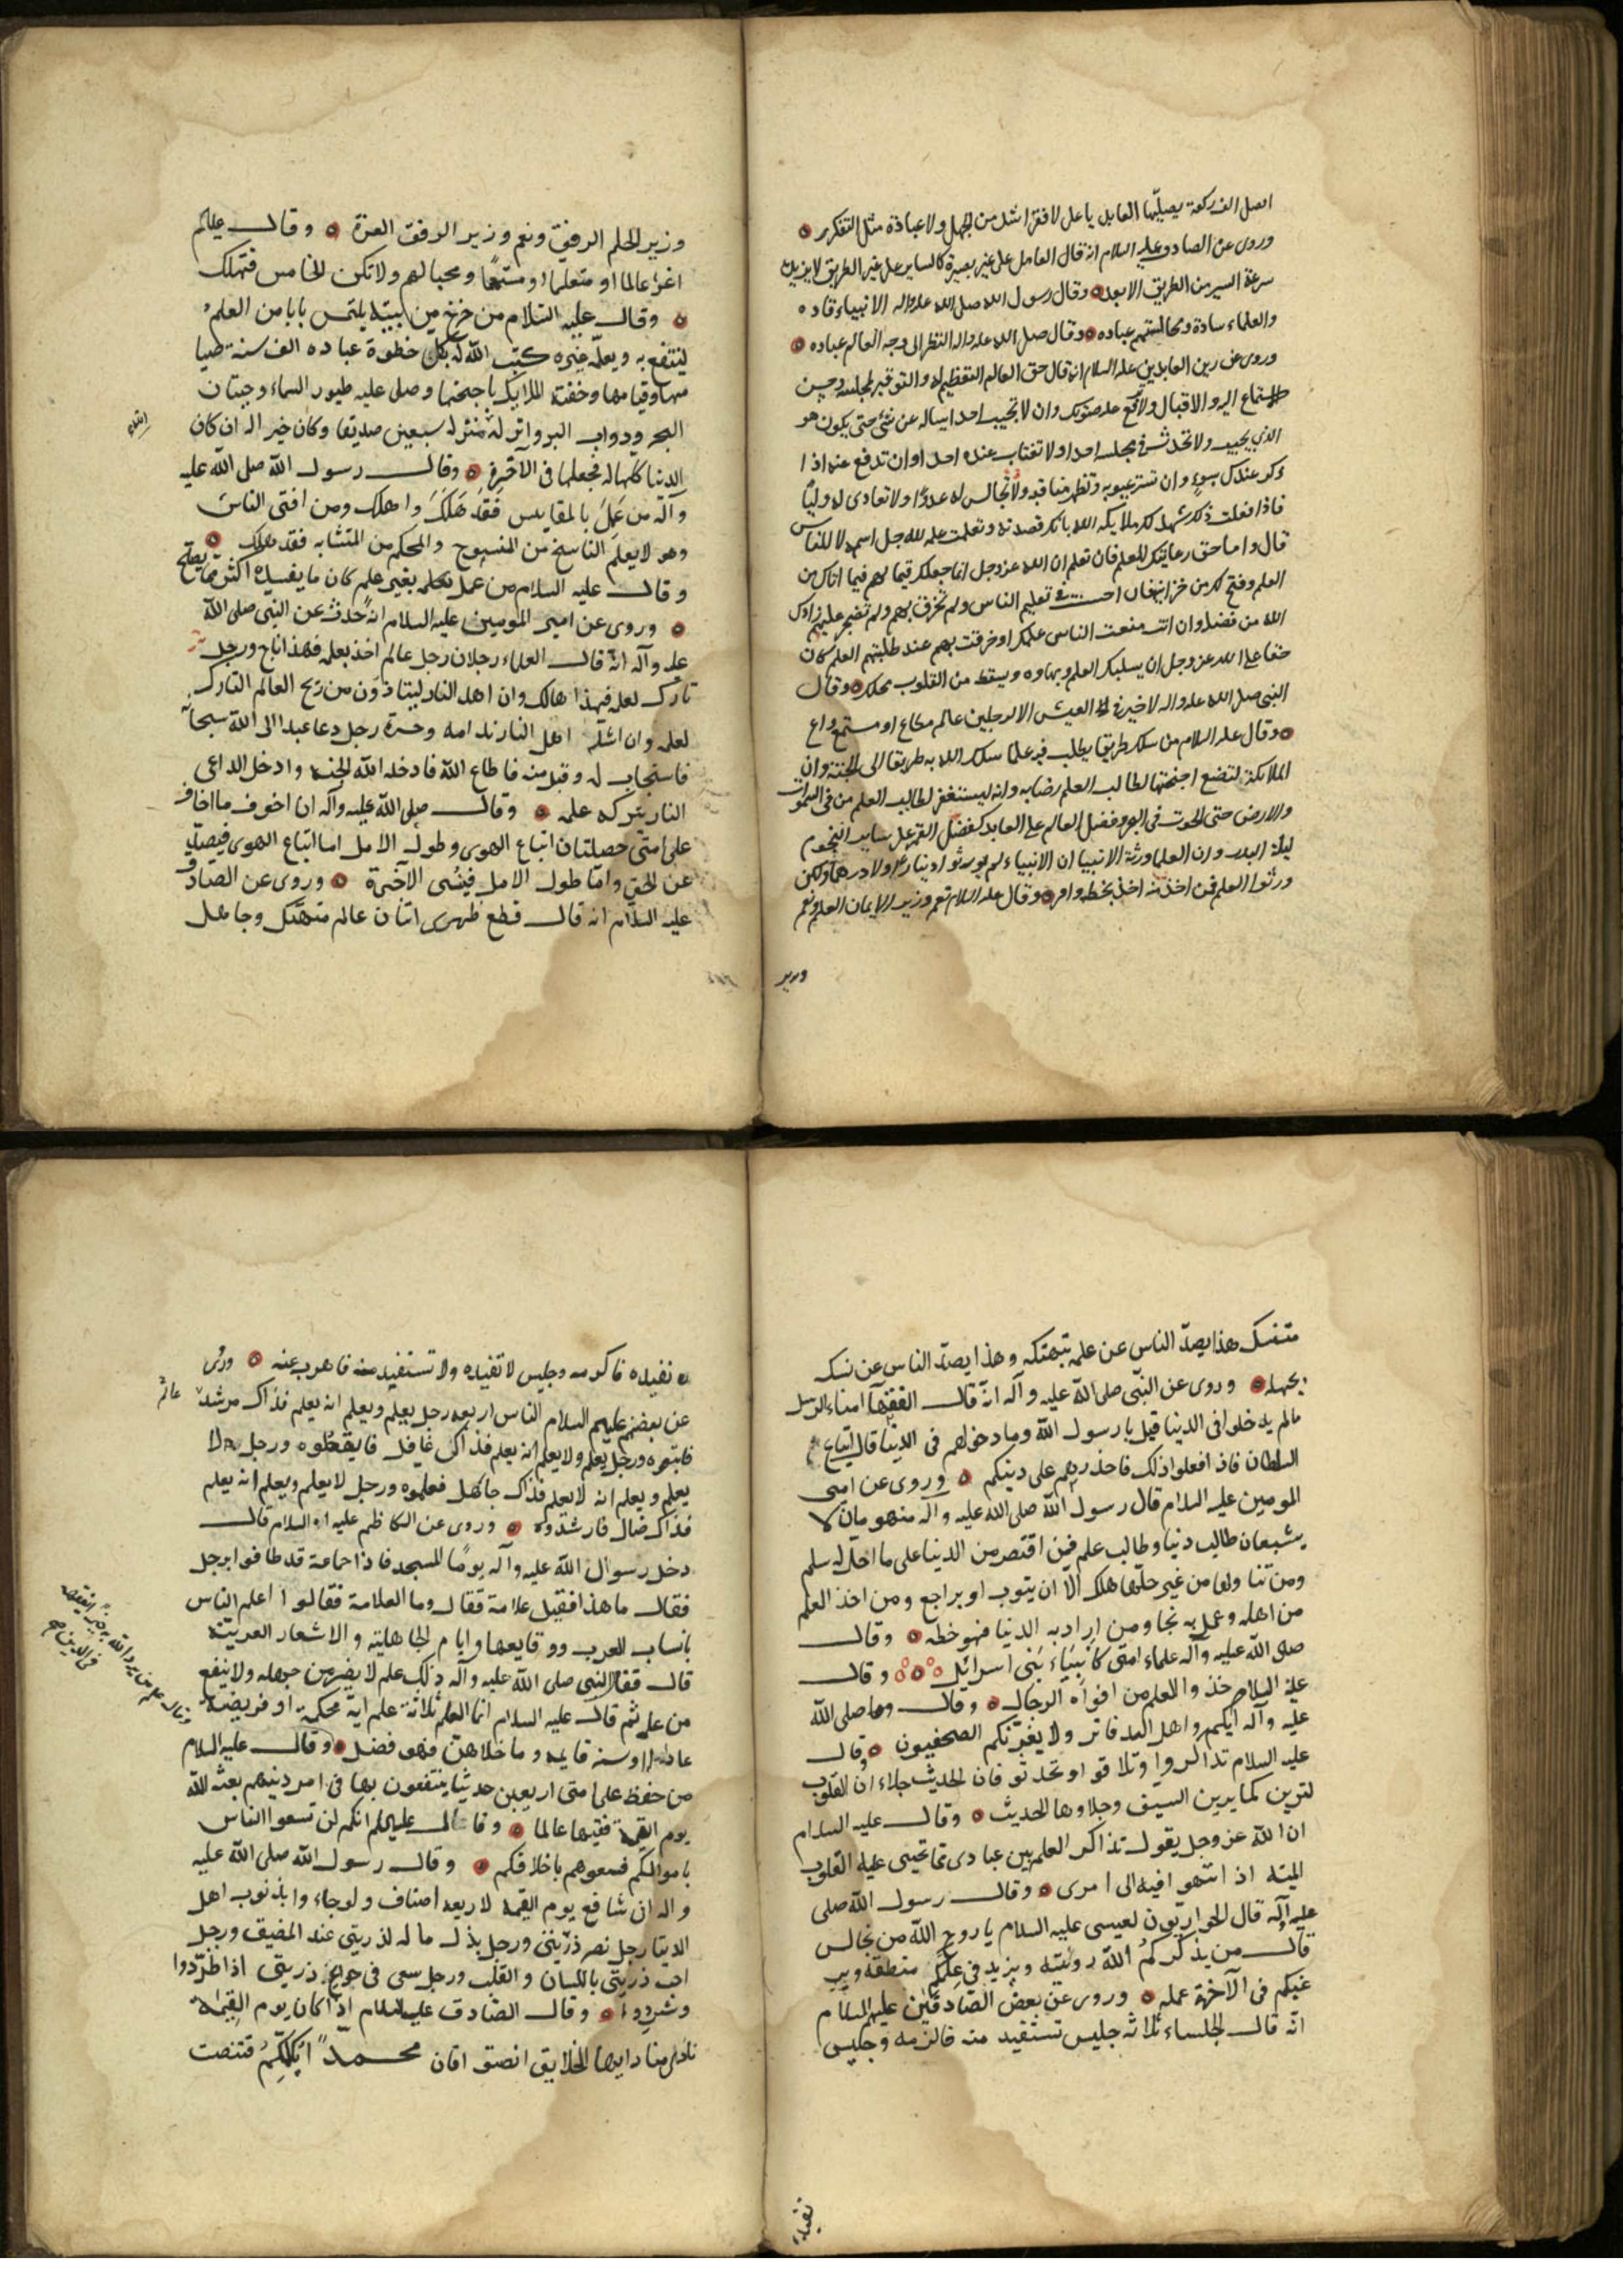 افضل الف ركعة يصليها العابد يا على لا فقر اشد من الجهل ولا عبادة مثل التفكر
وروى عن الصادق عليه السلام انه قال العامل على غير بصيرة كالساير على غير الطريق لا يزيده
سرعة السير من الطريق الا بعدا وقال رسول الله صلى الله عليه واله الانبياء قاده
والعلماء سادة ومجالستهم عباده وقال صلى الله عليه واله النظر الى وجه العالم عباده
وروى عن زين العابدين عليه السلام انه قال حق العالم التعظيم له والتوقير لمجلسه وحسن
الاستماع اليه والاقبال ولا ترفع عليه صوتك وان لا تجيب احدا يساله عن شئ حتى يكون هو
الذي يجيب ولا تحدث في مجلسه احدا ولا تغتاب عنده احدا وان تدفع عنه اذا
ذكر عندك بسوء وان تستر عيوبه وتظهر مناقبه ولا تجالس له عدوا ولا تعادى له وليا
فاذا فعلت ذلك شهد لك ملايكه الله بانك قصدته وتعلمت علمه لله جل اسمه لا للناس
قال واما حق رعايتك للعلم فان تعلم ان الله عز وجل انما جعلك قيما لهم فيما اتاك من
العلم وفتح لك من خزانته فان احسنت في تعليم الناس ولم تخرق بهم ولم تضجر عليهم زادك
الله من فضله وان انت منعت الناس علمك او خرقت بهم عند طلبتهم العلم كان
حقا على الله عز وجل ان يسلبك العلم وبهاوه ويسقط من القلوب محلك وقال
النبى صلى الله عليه واله لا خير فى العيش الا لرجلين عالم مطاع او مستمع واع
وقال عليه السلام من سلك طريقا يطلب فيه علما سلك الله به طريقا الى الجنة وان
الملائكة لتضع اجنحتها لطالب العلم رضا به وانه ليستغفر لطالب العلم من فى السموات
والارض حتى الحوت فى البحر وفضل العالم على العابد كفضل القمر على ساير النجوم
ليلة البدر وان العلما ورثة الانبيا ان الانبياء لم يورثوا دينارا ولا درهما ولكن
ورثوا العلم فمن اخذ منه اخذ بحظ وافر وقال عليه السلام نعم وزير الايمان العلم ونعم
وزير
وزير الحلم الرفق ونعم وزير الرفق العزة وقال عليه السلام
اغد عالما او متعلما او مستمعا ومحبا لهم ولا تكن الخامس فتهلك
وقال عليه السلام من خرج من بيته يلتمس بابا من العلم
لينتفع به ويعلمه غيره كتب الله له بكل خطوة عباده الف سنه صيا
مها وقيامها وحفته الملايكه باجنحتها وصلى عليه طيور السماء وحيتان
البحر ودواب البر وانزله منزله سبعين صديقا وكان خير اله ان كان
الدنيا كلها له فجعلها فى الآخره وقال رسول الله صلى الله عليه
وآله من عمل بالمقايس فقد هلك واهلك ومن افتى الناس
وهو لا يعلم الناسخ من المنسوخ والمحكم من المتشابه فقد هلك
وقال عليه السلام من عمل بغير علم كان ما يفسده اكثر مما يصلح
وروى عن امير المومنين عليه السلام انه حدث عن النبى صلى الله
عليه وآله انه قال العلماء رجلان رجل عالم اخذ بعلمه فهذا ناج ورجل
تارك لعلمه فهذا هالك وان اهل النار ليتاذون من ريح العالم التارك
لعلمه وان اشد اهل النار ندامه وحسرة رجل دعا عبدا الى الله سبحانه
فاستجاب له وقبل منه فاطاع الله فادخله الله الجنه وادخل الداعى
النار بتركه علمه وقال صلى الله عليه وآله ان اخوف ما اخاف
على امتى خصلتان اتباع الهوى وطول الامل اما اتباع الهوى فيصد
عن الحق واما طول الامل فينسى الآخرة وروى عن الصادق
عليه السلام انه قال قطع ظهرى اثنان عالم متهتك وجاهل
متنسك هذا يصد الناس عن علمه بتهتكه وهذا يصد الناس عن نسكه
بجهله وروى عن النبى صلى الله عليه وآله انه قال الفقهآ امناء الرسل
مالم يدخلوا فى الدنيا قيل يا رسول الله وما دخولهم فى الدنيا قال اتباع
السلطان فاذا فعلوا ذلك فاحذروهم على دينكم وروى عن امير
المومنين عليه السلام قال رسول الله صلى الله عليه وآله منهومان لا
يشبعان طالب دنيا وطالب علم فمن اقتصر من الدنيا على ما احل له سلم
ومن تناولها من غير حلها هلك الا ان يتوب او يراجع ومن اخذ العلم
من اهله وعمل به نجا ومن اراد به الدنيا فهو حظه وقال
صلى الله عليه وآله علماء امتى كانبياء بنى اسرائيل وقال
عليه السلام خذوا العلم من افواه الرجال وقال صلى الله
عليه وآله اياكم واهل الدفاتر ولا يغرنكم الصحفيون وقال
عليه السلام تذاكروا وتلاقوا وتحدثوا فان الحديث جلاء ان القلوب
لترين كما يرين السيف وجلاوها الحديث وقال عليه السلام
ان الله عز وجل يقول تذاكر العلم بين عبادى مما تحيى عليه القلوب
الميته اذ انتهوا فيه الى امرى وقال رسول الله صلى
عليه وآله قال الحواريون لعيسى عليه السلام يا روح الله من نجالس
قال من يذكركم الله رويته ويزيد فى علمكم منطقه وير
غبكم فى الآخرة عمله وروى عن بعض الصادقين عليهم السلام
انه قال الجلساء ثلاثه جليس تستفيد منه فالزمه وجليس
تفيده
تفيده فاكرمه وجليس لا تفيده ولا تستفيد منه فاهرب عنه وروى
عن بعضهم عليهم السلام الناس اربعه رجل يعلم ويعلم انه يعلم فذاك مرشد عالم
فاتبعوه ورجل يعلم ولا يعلم انه يعلم فذاك غافل فايقظوه ورجل لا
يعلم ويعلم انه لا يعلم فذاك جاهل فعلموه ورجل لا يعلم ويعلم انه يعلم
فذاك ضال فارشدوه وروى عن الكاظم عليه السلام قال
دخل رسول الله عليه وآله يوما المسجد فاذا جماعة قد طافوا برجل
فقال ما هذا فقيل علامة فقال وما العلامة فقالوا اعلم الناس
بانساب العرب ووقايعها وايام الجاهلية والاشعار العربية
قال فقال النبى صلى الله عليه وآله ذلك علم لا يضر من جهله ولا ينفع
من علمه ثم قال عليه السلام انما العلم ثلاثة علم اية محكمة او فريضة
عادلة او سنه قايمه وما خلاهن فهو فضل وقال عليه السلام
من حفظ على امتى اربعين حديثا ينتفعون بها فى امر دينهم بعثه الله
يوم القيمة فقيها عالما وقال عليه السلام انكم لن تسعوا الناس
باموالكم فسعوهم باخلاقكم وقال رسول الله صلى الله عليه
واله ان شافع يوم القيمه لاربعه اصناف ولو جاءوا بذنوب اهل
الدنيا رجل نصر ذريتى ورجل بذل ماله لذريتى عند المضيق ورجل
احب ذريتى باللسان والقلب ورجل سعى فى حوايج ذريتى اذا طردوا
وشردوا وقال الصادق عليه السلام اذا كان يوم القيمة
نادى مناد ايها الخلايق انصتوا فان محمدا يكلمكم فتنصت